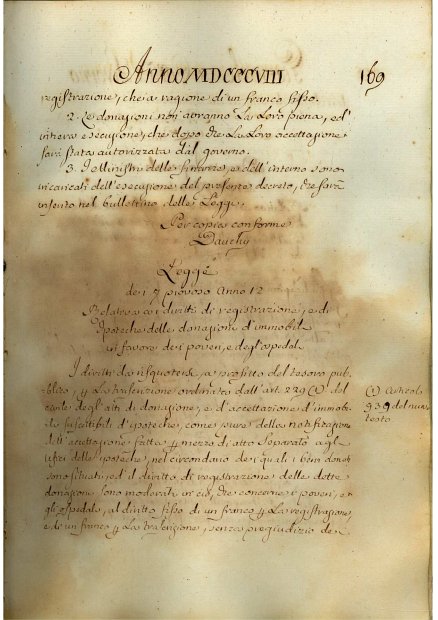 Anno MDCCCVIII 169
registrazione, che a ragione di un franco fisso.
2. Le donazioni non avranno la loro piena, ed
intera esecuzione, che dopo che la loro accettazione
sarà stata autorizzata dal governo.
3. I Ministri delle finanze, e dell'interno sono
incaricati dell'esecuzione del presente decreto, che sarà
inserto nel bullettino delle Leggi.
Per copia conforme
Dauchy
Legge
dei 7 piovoso Anno 12
Relativa ai diritti di registrazione, e di
Ipoteche delle donazioni d'immobili
a favore dei poveri, e degl'ospedali
I diritti da risquotersi a profitto del tesoro pub-
blico, la trascrizione ordinata dall'art. 229 (1) del
degli atti di donazione, e d'accettazione d'immobi-
li suscettibili d'ipoteche, come pure della notificazione
dell'accettazione fatta mezzo di atto separato agl'
ufizi delle ipoteche, nel circondario dei quali i beni donati
sono situati, ed il diritto di registrazione delle dette
donazioni sono moderati in ciò, che concerne i poveri, e
gli ospedali, al diritto fisso di un franco la registrazione,
e di un franco la trascrizione, senza pregiudizio dei
(1) Articolo
939 del nuo
testo